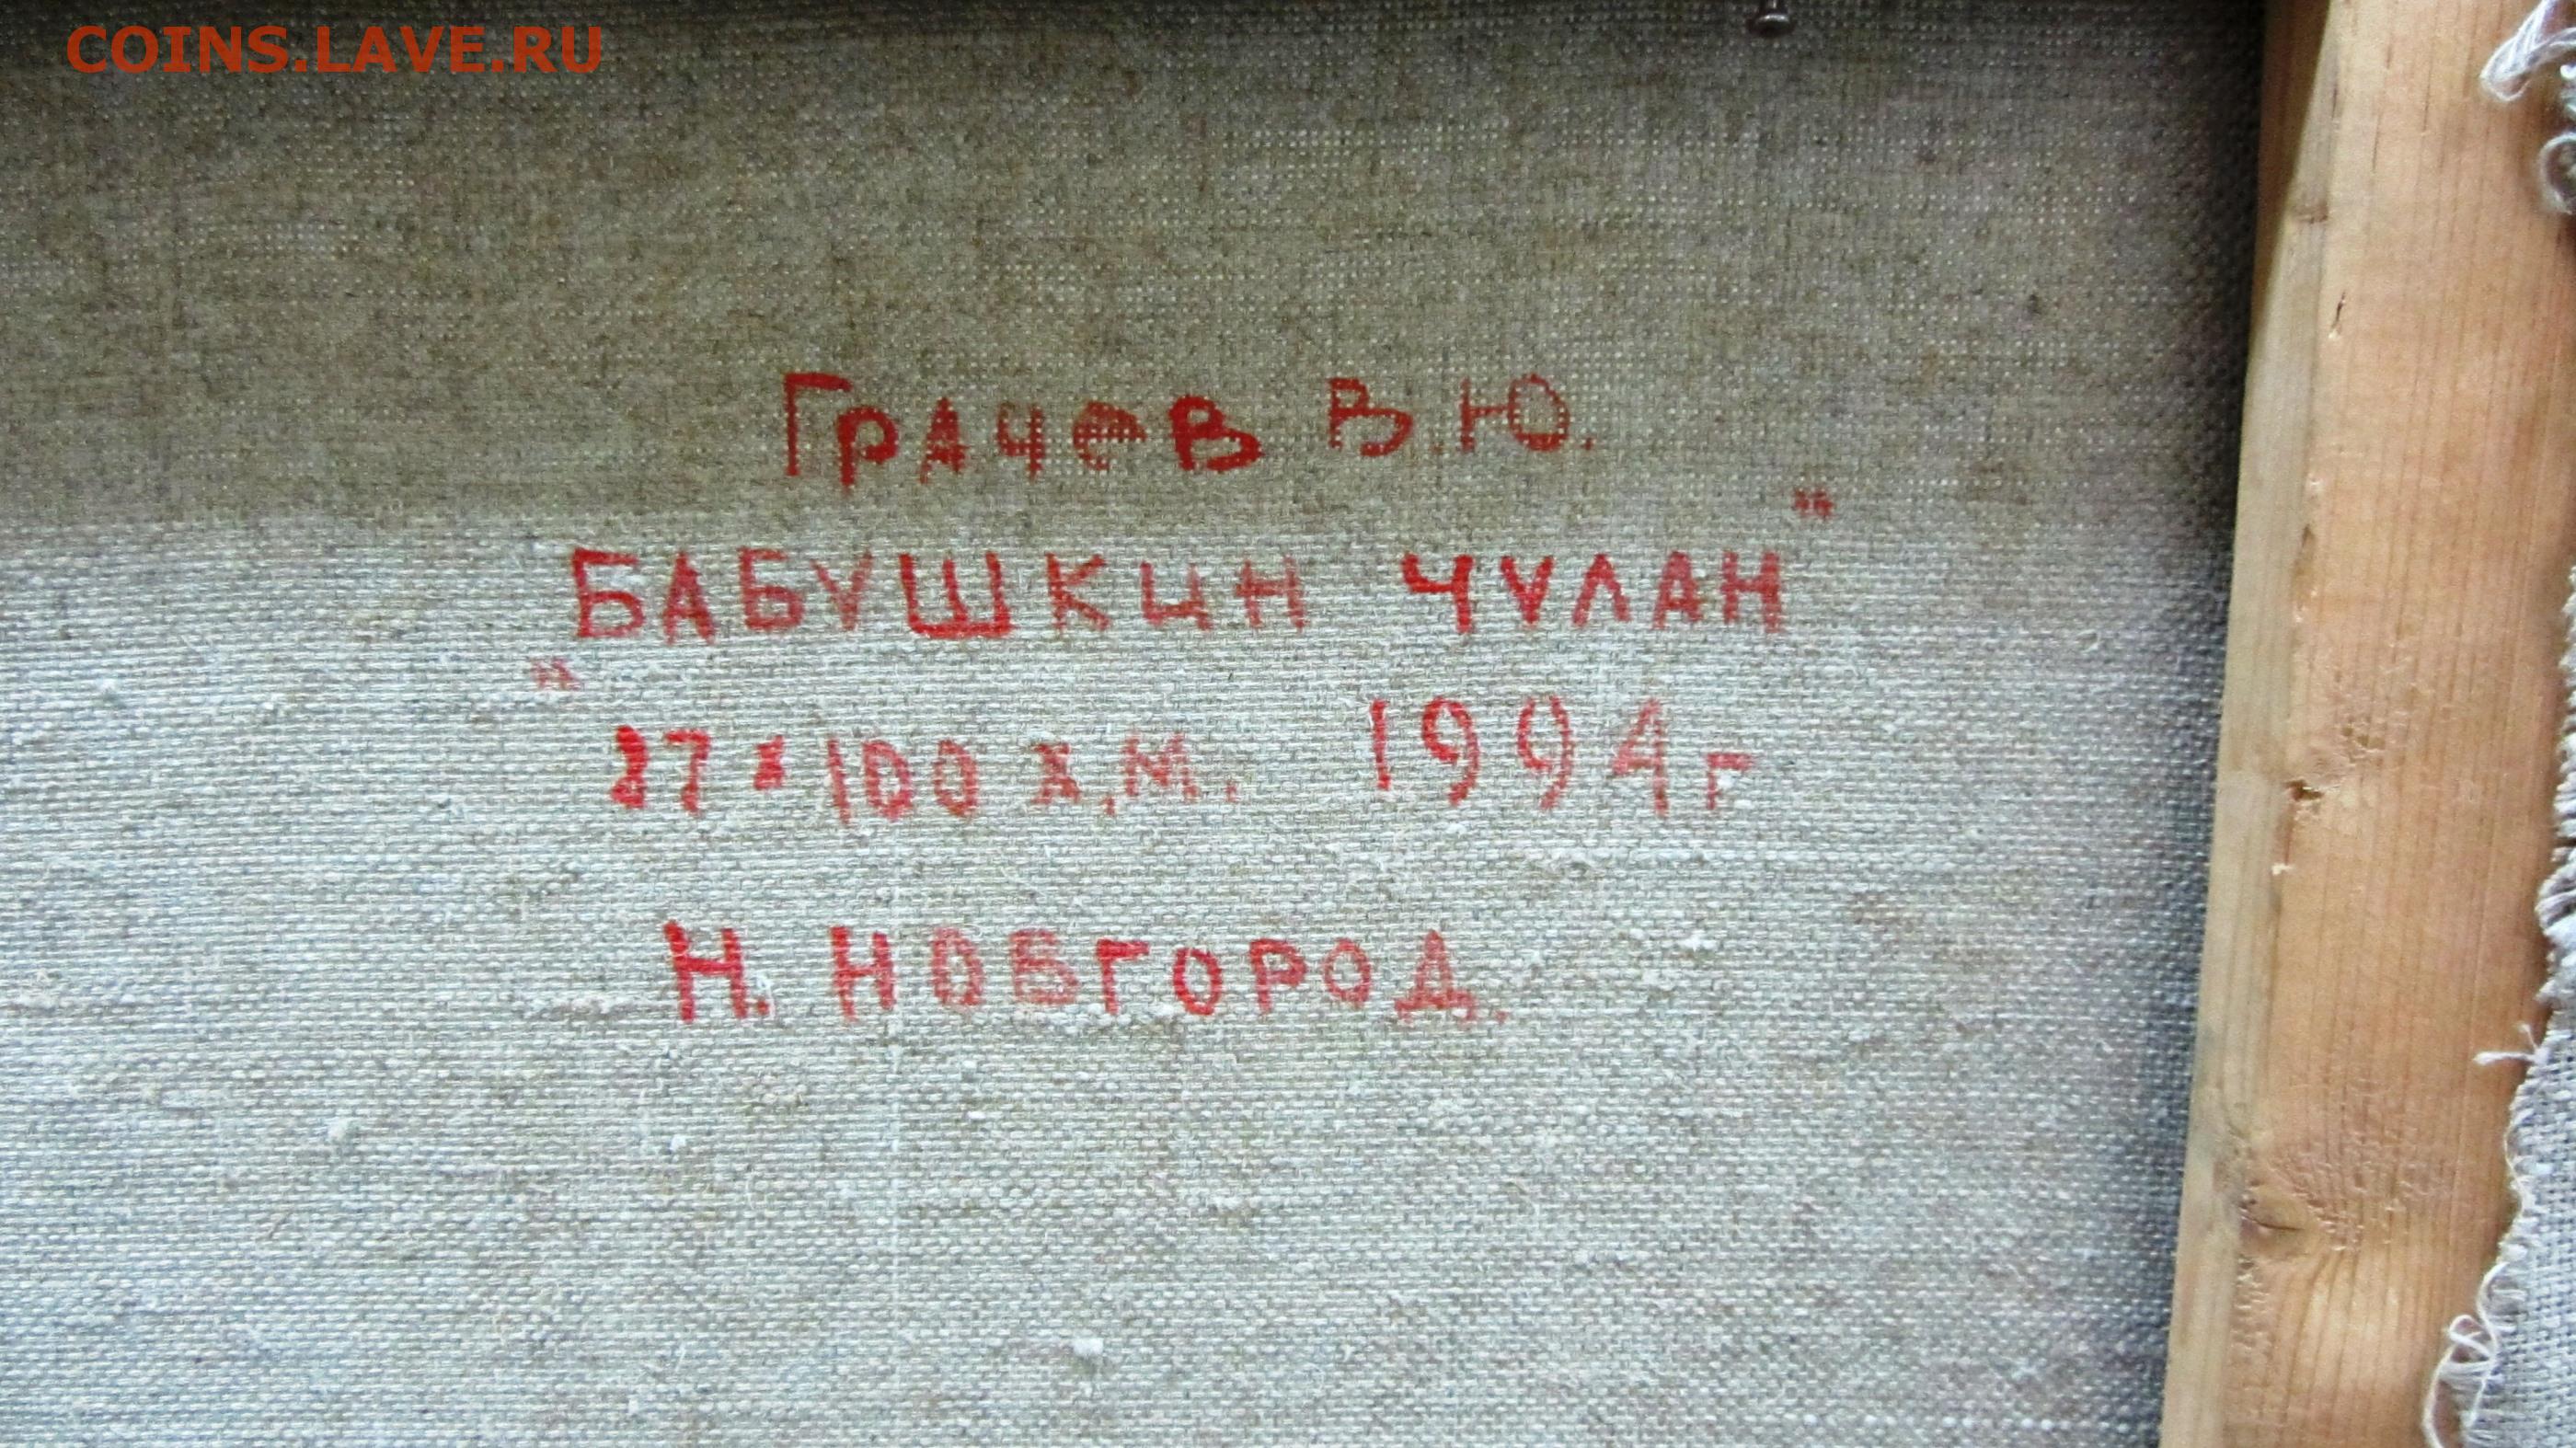 COINS.LAVE.RU
Грачев В.Ю.
„БАБУШКИН ЧУЛАН"
100 х.м. 1994г
Н. НОВГОРОД.